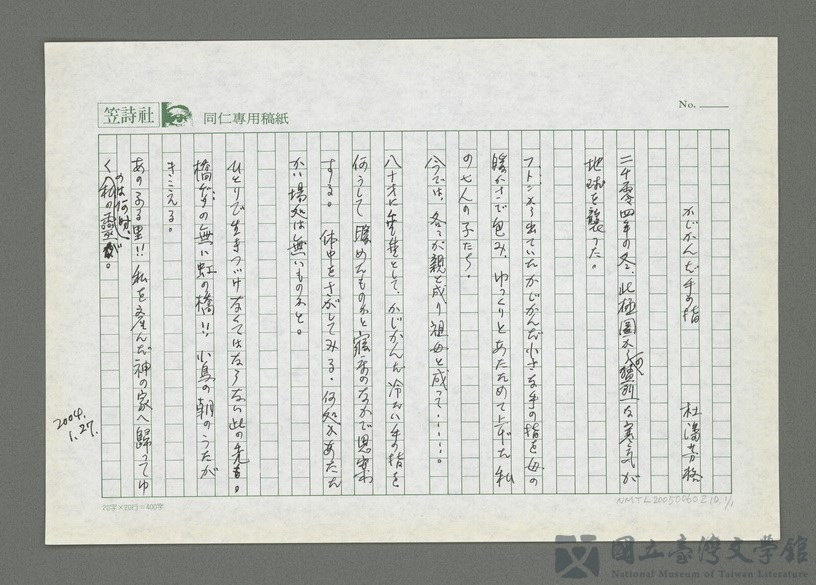 笠詩社
同仁專用稿紙
No.
かじかんだ手の指
杜潘芳格
二千零四年の冬、北極圏からの猛烈な寒気が
地球を襲った。
フトンから出ていたかじかんだ小さな手の指を母の
暖かさで包み、ゆっくりとあたためて上げた私
の七人の子たち。
今では、各々が親と成り祖母と成って・・・・・・。
八十才に手をとして、かじかんだ冷たい手の指を
何うして暖めたものかと寝床のなかで思案
する。体中をさがしてみる。何処かあたた
かい場処は無いものかと。
ひとりで生きつづけなくてはならない此の先を。
橋げたの無い虹の橋!!小鳥の朝のうたが
きこえる。
あのある里!!私を産んだ神の家へ歸ってゆ
くのは何時か
私の霊。
2004.
1.27.
20字×20行=400字
NMTL20050060210, 1/1
國立臺灣文學館
National Museum of Taiwan Literature